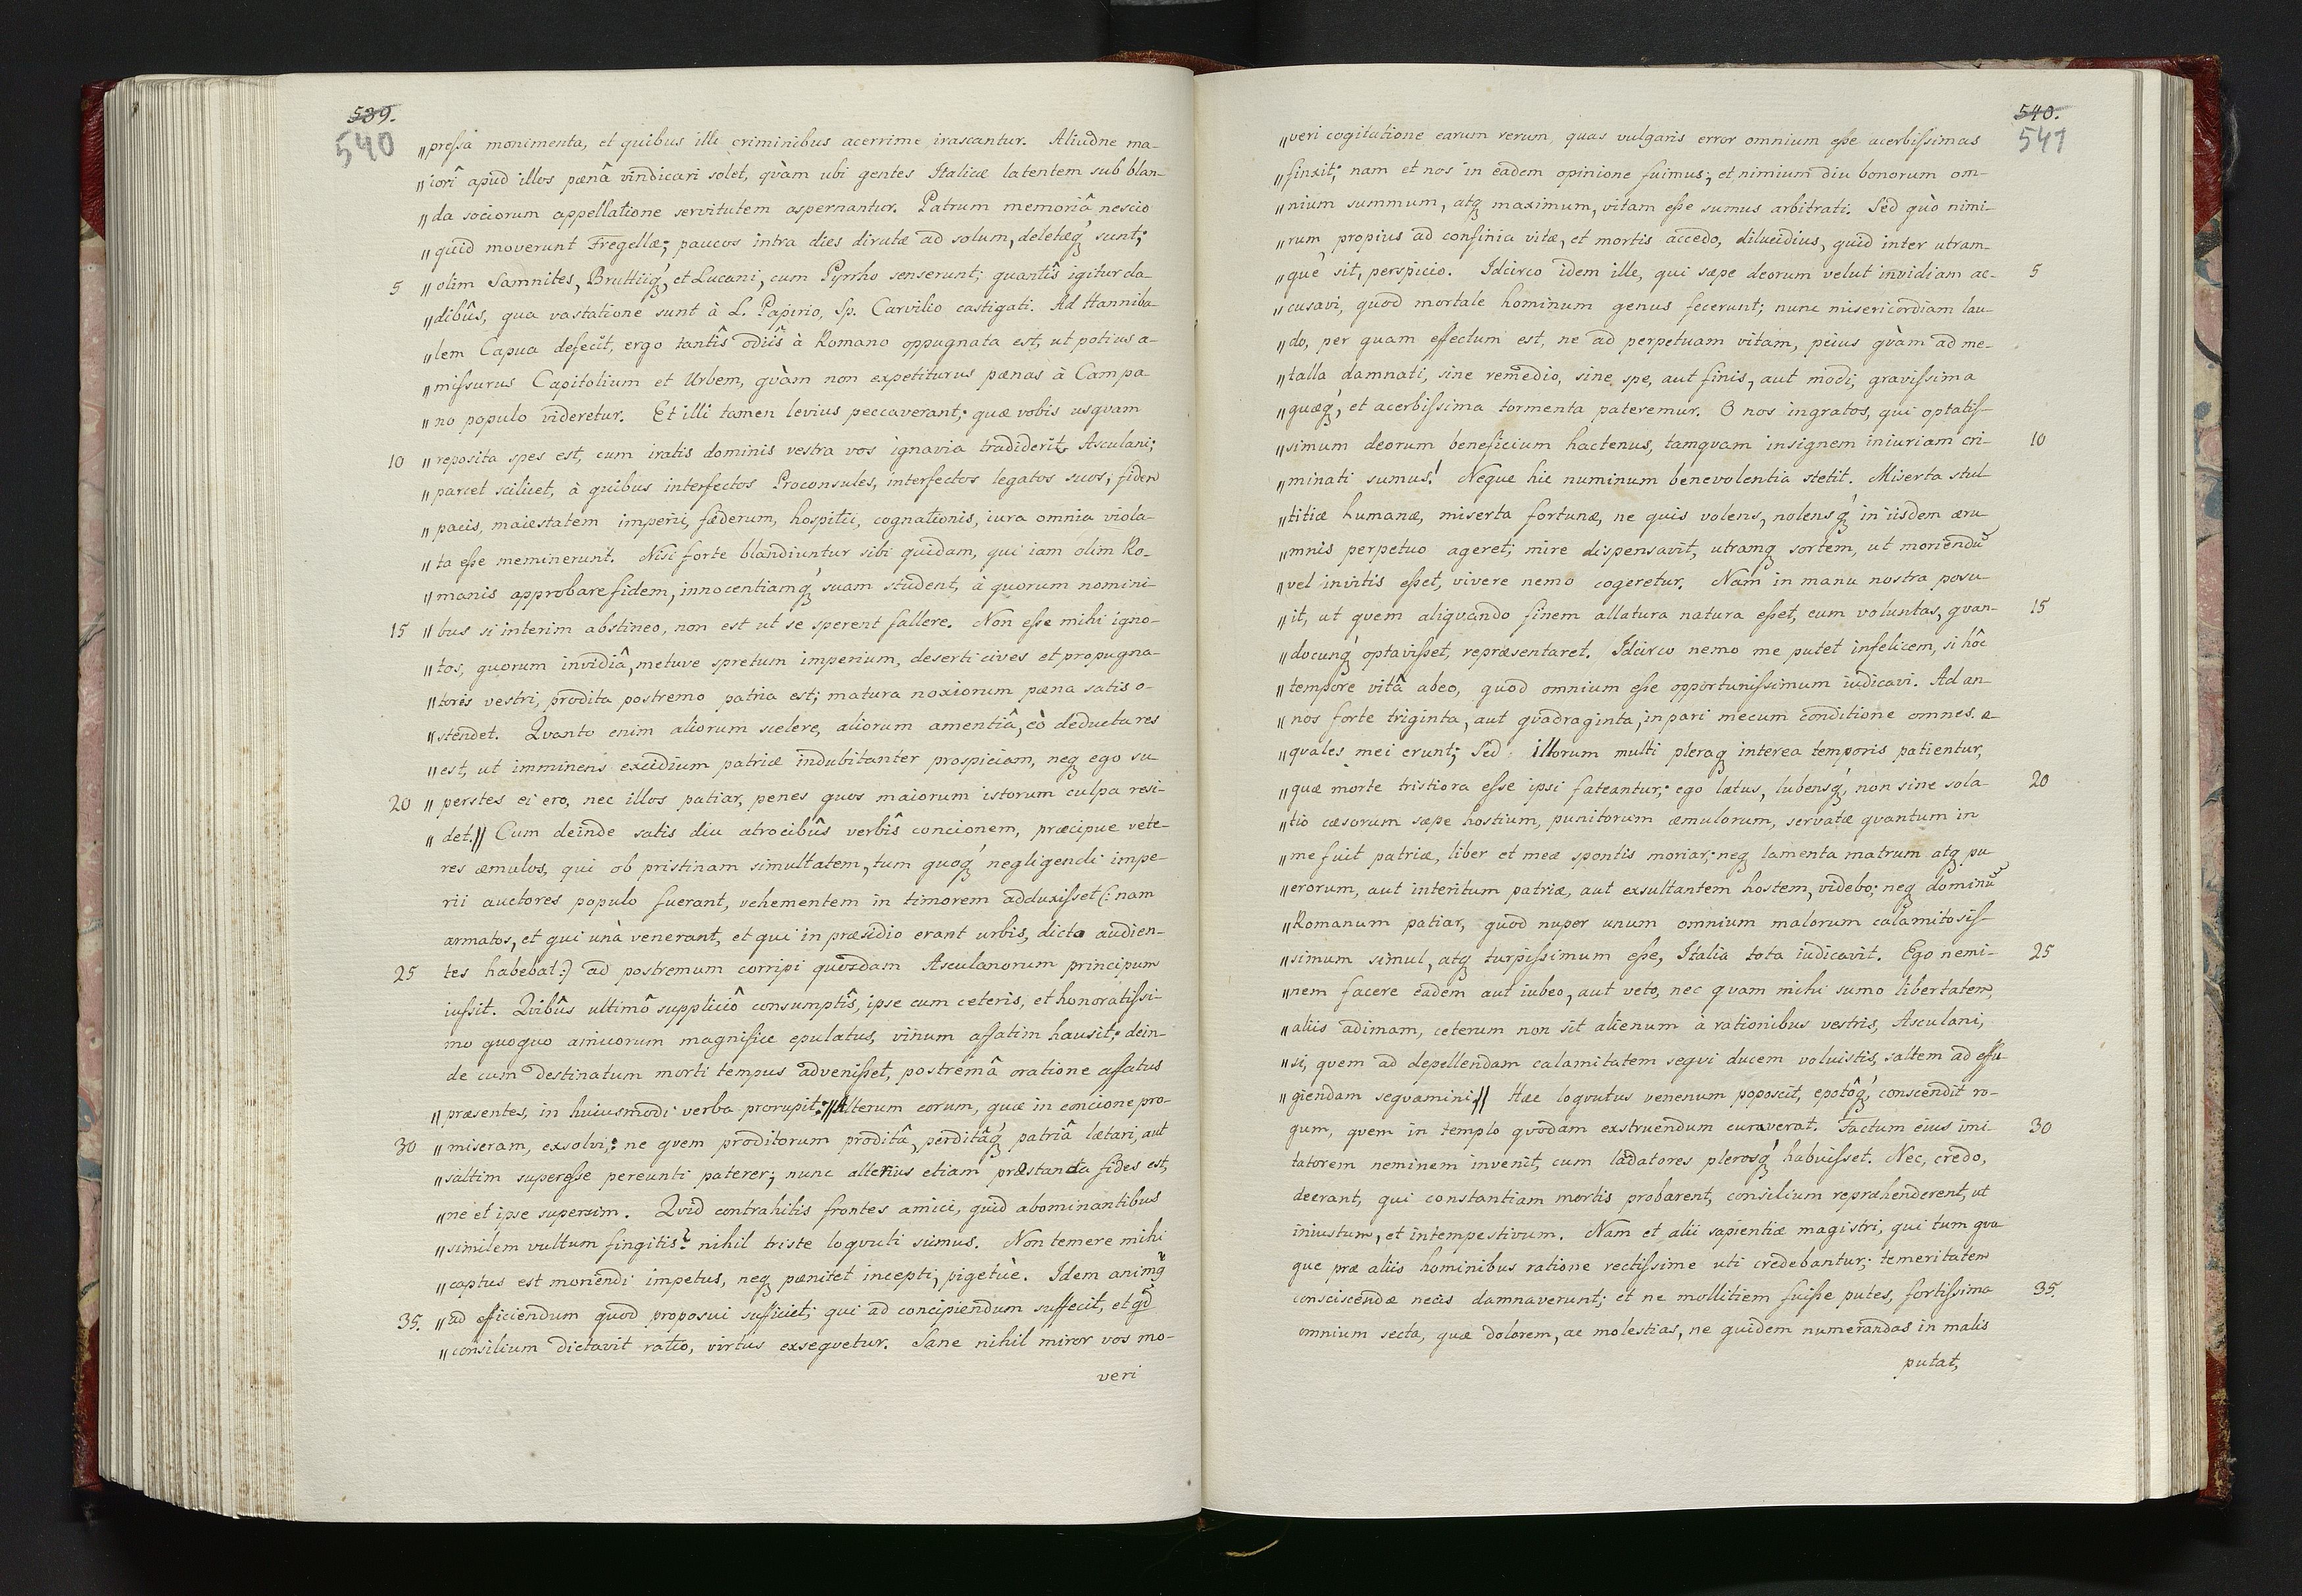 539.
540
„pressa monimenta, et quibus illi criminibus acerrime irascantur. Aliudne ma-
„iorî apud illos pænâ vindicari solet, qvàm ubi gentes Italicæ latentem sub blan-
„da sociorum appellatione servitutem aspernantur. Patrum memoriâ nescio
„quid moverunt Fregellæ; paucos intra dies dirutæ ad solum, deletæq́ sunt;
5 „olim Samnites, Bruttiiq́, et Lucani, cum Pyrrho senserunt; quantîs igitur cla-
„dibûs, qua vastatione sunt à L. Papirio, Sp. Carvilio castigati. Ad Hanniba-
„lem Capua defecit, ergo tantîs odiîs à Romano oppugnata est, ut potius a-
„missurus Capitolium et Urbem, qvàm non expetiturus pænas à Campa
„no populo videretur. Et illi tamen levius peccaverant; quæ vobis usqvam
10 „reposita spes est, cum iratis dominis vestra vos ignavia tradiderit Asculani;
„parcet scilicet, à quibus interfectos Proconsules, interfectos legatos suos; fidem
„pacis, maiestatem imperii, fæderum, hospitii, cognationis, iura omnia viola-
„ta esse meminerunt. Nisi forte blandiuntur sibi quidam, qui iam olim Ro-
„manis approbare fidem, innocentiamq́ suam student, à quorum nomini-
15 „bus si interim abstineo, non est ut se sperent fallere. Non esse mihi igno-
„tos, quorum invidiâ, metuve spretum imperium, deserti cives et propugna-
„toris vestri, prodita postremo patria est; matura noxiorum pæna satis o-
„stendet. Qvanto enim aliorum scelere, aliorum amentiâ, eò deducta res
„est, ut imminens excidium patriæ indubitanter prospiciam, neq ego su
20 „perstes ei ero, nec illos patiar, penes quos maiorum istorum culpa resi-
„det.// Cum deinde satis diu atrocibûs verbîs concionem, præcipue vete-
res æmulos, qui ob pristinam simultatem, tum quoq́ negligendi impe-
rii auctores populo fuerant, vehementem in timorem adduxisset (: nam
armatos, et qui unà venerant, et qui in præsidio erant urbis, dicto audien-
25 tes habebat:) ad postremum corripi quosdam Asculanorum principum
iussit. Qvibûs ultimô suppliciô consumptîs, ipse cum ceteris, et honoratissi-
mo quoquo amicorum magnifice epulatus, vinum affatim hausit; dein-
de cum destinatum morti tempus advenisset, postremâ oratione affatus
„præsentes, in huiusmodi verba prorupit: //Alterum eorum, quæ in concione pro-
30 „miseram, exsolvi; ne qvem proditorum proditâ, perditâq́ patriâ lætari, aut
„saltim superesse pereunti paterer; nunc alterius etiam præstanda fides est,
„ne et ipse supersim. Qvid contrahitis frontes amici, quid abominantibus
„similem vultum fingitis? nihil triste loqvuti sumus. Non temere mihi
„captus est moriendi impetus, neq pænitet incepti, pigetùe. Idem animq
35. „ad efficiendum quod proposui sufficiet; qui ad concipiendum suffecit, et qd
„consilium dictavit ratio, virtus exseqvetur. Sane nihil miror vos mo-
veri
540.
541
„veri cogitatione earum rerum, quas vulgaris error omnium esse acerbissimas
„finxit; nam et nos in eadem opinione fuimus; et nimium diu bonorum om-
„nium summum, atq maximum, vitam esse sumus arbitrati. Sed quò nimi-
„rum propius ad confinia vitæ, et mortis accedo, dilucidius, quid inter utram-
„que sit, perspicio. Idcirco idem ille, qui sæpe deorum velut invidiam ac- 5
„cusavi, quod mortale hominum genus fecerunt; nunc misericordiam lau-
„do, per quam effectum est, ne ad perpetuam vitam, peius qvàm ad me-
„talla damnati, sine remedio, sine spe, aut finis, aut modi, gravissima
„quæq́, et acerbissima tormenta pateremur. O nos ingratos, qui optatis-
„simum deorum beneficium hactenus, tamqvam insignem iniuriam cri- 10
„minati sumus! Neque hic numinum benevolentia stetit. Miserta stul
„titiæ humanæ, miserta fortunæ, ne quis volens, nolensq́ in iisdem æru-
„mnis perpetuo ageret; mire dispensavit, utramq sortem, ut moriendũ
„vel invitis esset, vivere nemo cogeretur. Nam in manu nostra posu-
„it, ut qvem aliqvando finem allatura natura esset, eum voluntas, qvan- 15
„docunq́ optavisset, repræsentaret. Idcirco nemo me putet infelicem, si hôc
„tempore vitâ abeo, quod omnium esse opportunissimum iudicavi. Ad an-
„nos forte triginta, aut qvadraginta, in pari mecum conditione omnes æ-
„qvales mei erunt; sed illorum multi pleraq interea temporis patientur,
„quæ morte tristiora esse ipsi fateantur; ego lætus, lubensq́, non sine sola- 20
„tio cæsorum sæpe hostium, punitorum æmulorum, servatæ qvantum in
„me fuit patriæ, liber et meæ spontis moriar; neq lamenta matrum atq pu
„erorum, aut interitum patriæ, aut exsultantem hostem, videbo; neq dominũ
„Romanum patiar, quod nuper unum omnium malorum calamitosis-
„simum simul, atq turpissimum esse, Italia tota iudicavit. Ego nemi- 25
„nem facere eadem aut iubeo, aut veto, nec qvam mihi sumo libertatem,
„aliis adimam, ceterum non sit alienum à rationibus vestris, Asculani,
„si, qvem ad depellendam calamitatem seqvi ducem voluistis, saltem ad effu-
„giendam seqvamini.// Hæc loqvutus venenum poposcit, epotôq́, conscendit ro-
gum, qvem in templo qvodam exstruendum curaverat. Factum eius imi- 30
tatorem neminem invenit, cum laudatores plerosq́ habuisset. Nec, credo,
deerant, qui constantiam mortis probarent, consilium repræhenderent, ut
iniustum, et intempestivum. Nam et alii sapientiæ magistri, qui tum qva
que præ aliis hominibus ratione rectissime uti credebantur; temeritatem
consciscendæ necis damnaverunt; et ne mollitiem fuisse putes, fortissima 35.
omnium secta, quæ dolorem, ac molestias, ne quidem numerandas in malis
putat,